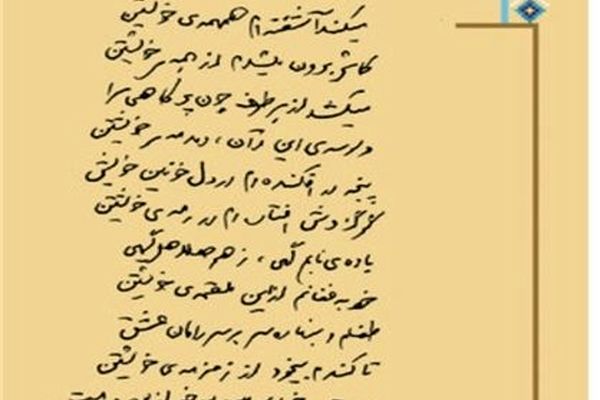 میکند آشفته ام همهمه ی خویشتن
کاش برون میشدم از همه ی خویشتن
میکشد از هر طرف چون پر کاهی مرا
وسوسه ی این و آن، دمدمه ی خویشتن
پنجه در افکنده ام در دل خونین خویش
گرگ وش افتاده ام در رمه ی خویشتن
باده ی نابم گهی، زهر هلاهل گهی
خود به فغانم از این ملقمه ی خویشتن
طفلم و بنهاده سر بر سر دامان عشق
تا کندم بیخود از زمزمه ی خویشتن